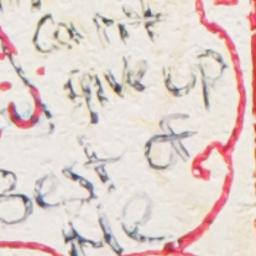 can't
give up
Best of
Me